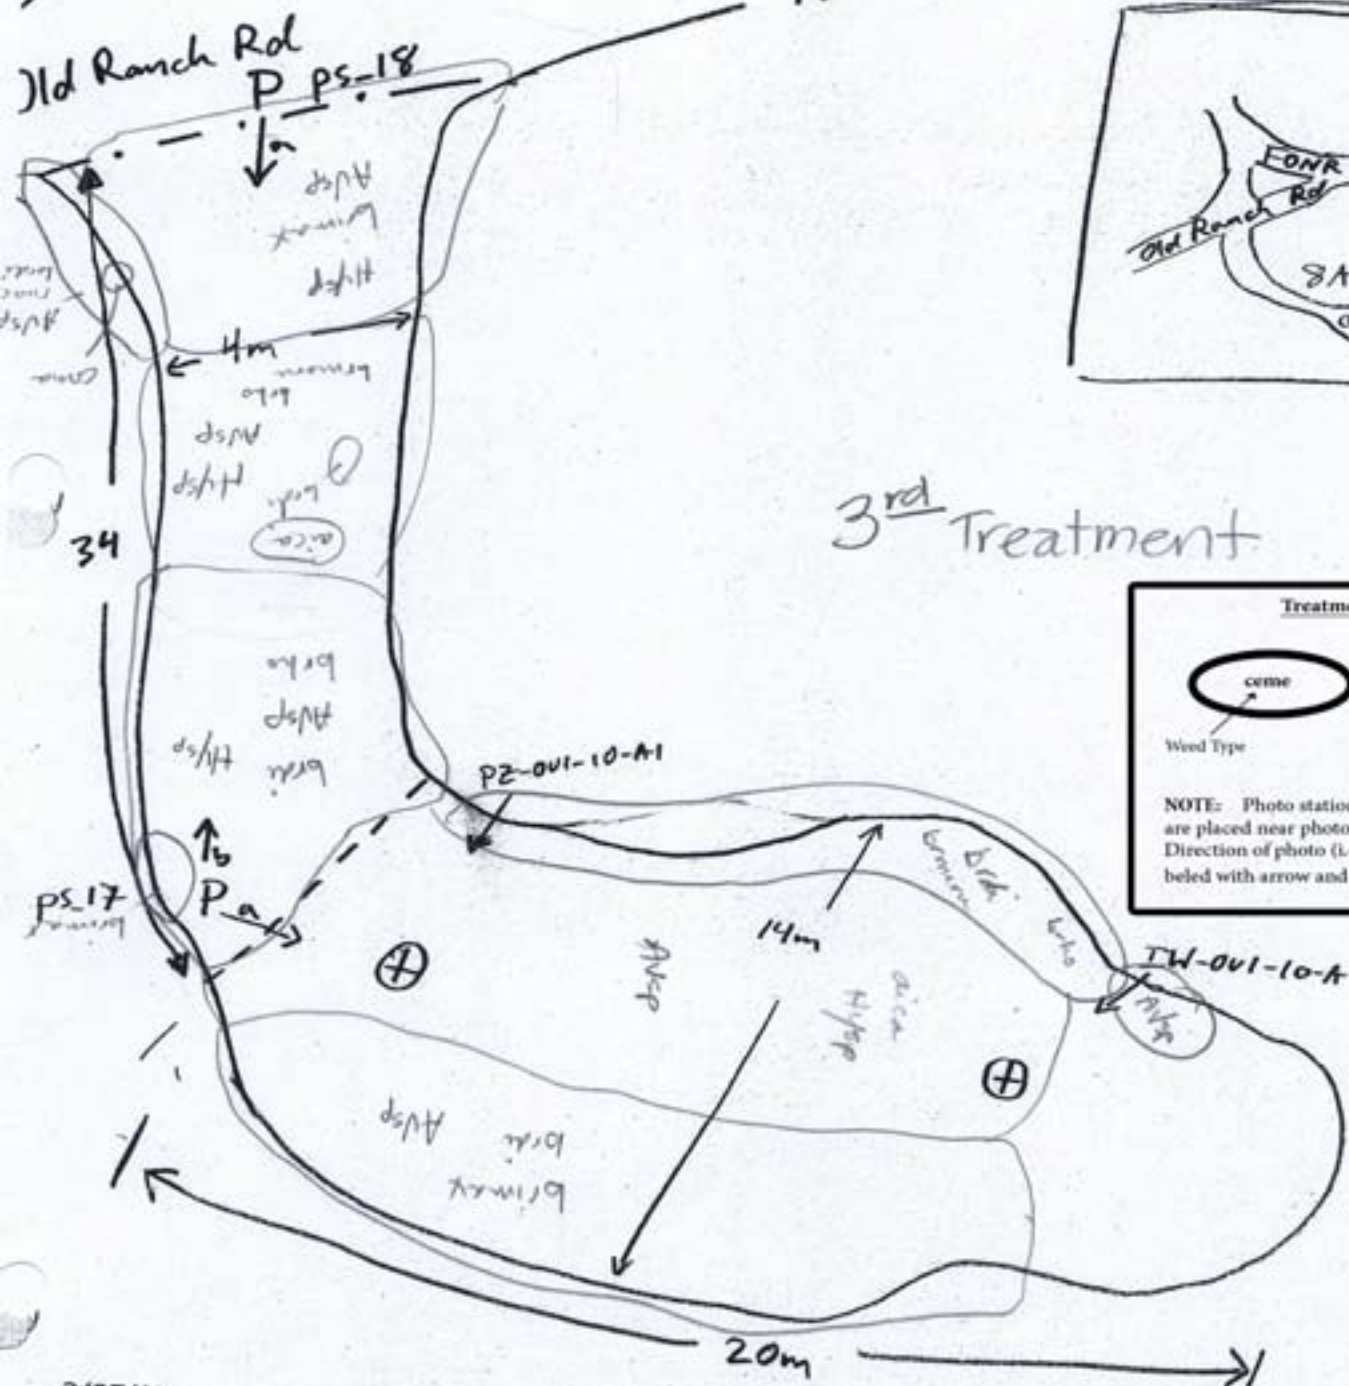 Old Ranch Rd
P ps_18
a
AVsp
brimax
Hysp
brdi
AVsp
4m
brmom
brho
AVsp
Hysp
brdi
aica
34
brho
AVsp
Hysp
brdi
b
ps_17
P a
brimax
PZ-OV1-10-A1
14m
AVsp
aica
Hysp
brdi
brmom
brho
TW-OV1-10-A
AVsp
AVsp
brdi
brimax
20m
FONR
Old Ranch Rd
8A
3rd Treatment
Treatme
ceme
Weed Type
NOTE: Photo station
are placed near photo
Direction of photo (i.
beled with arrow and